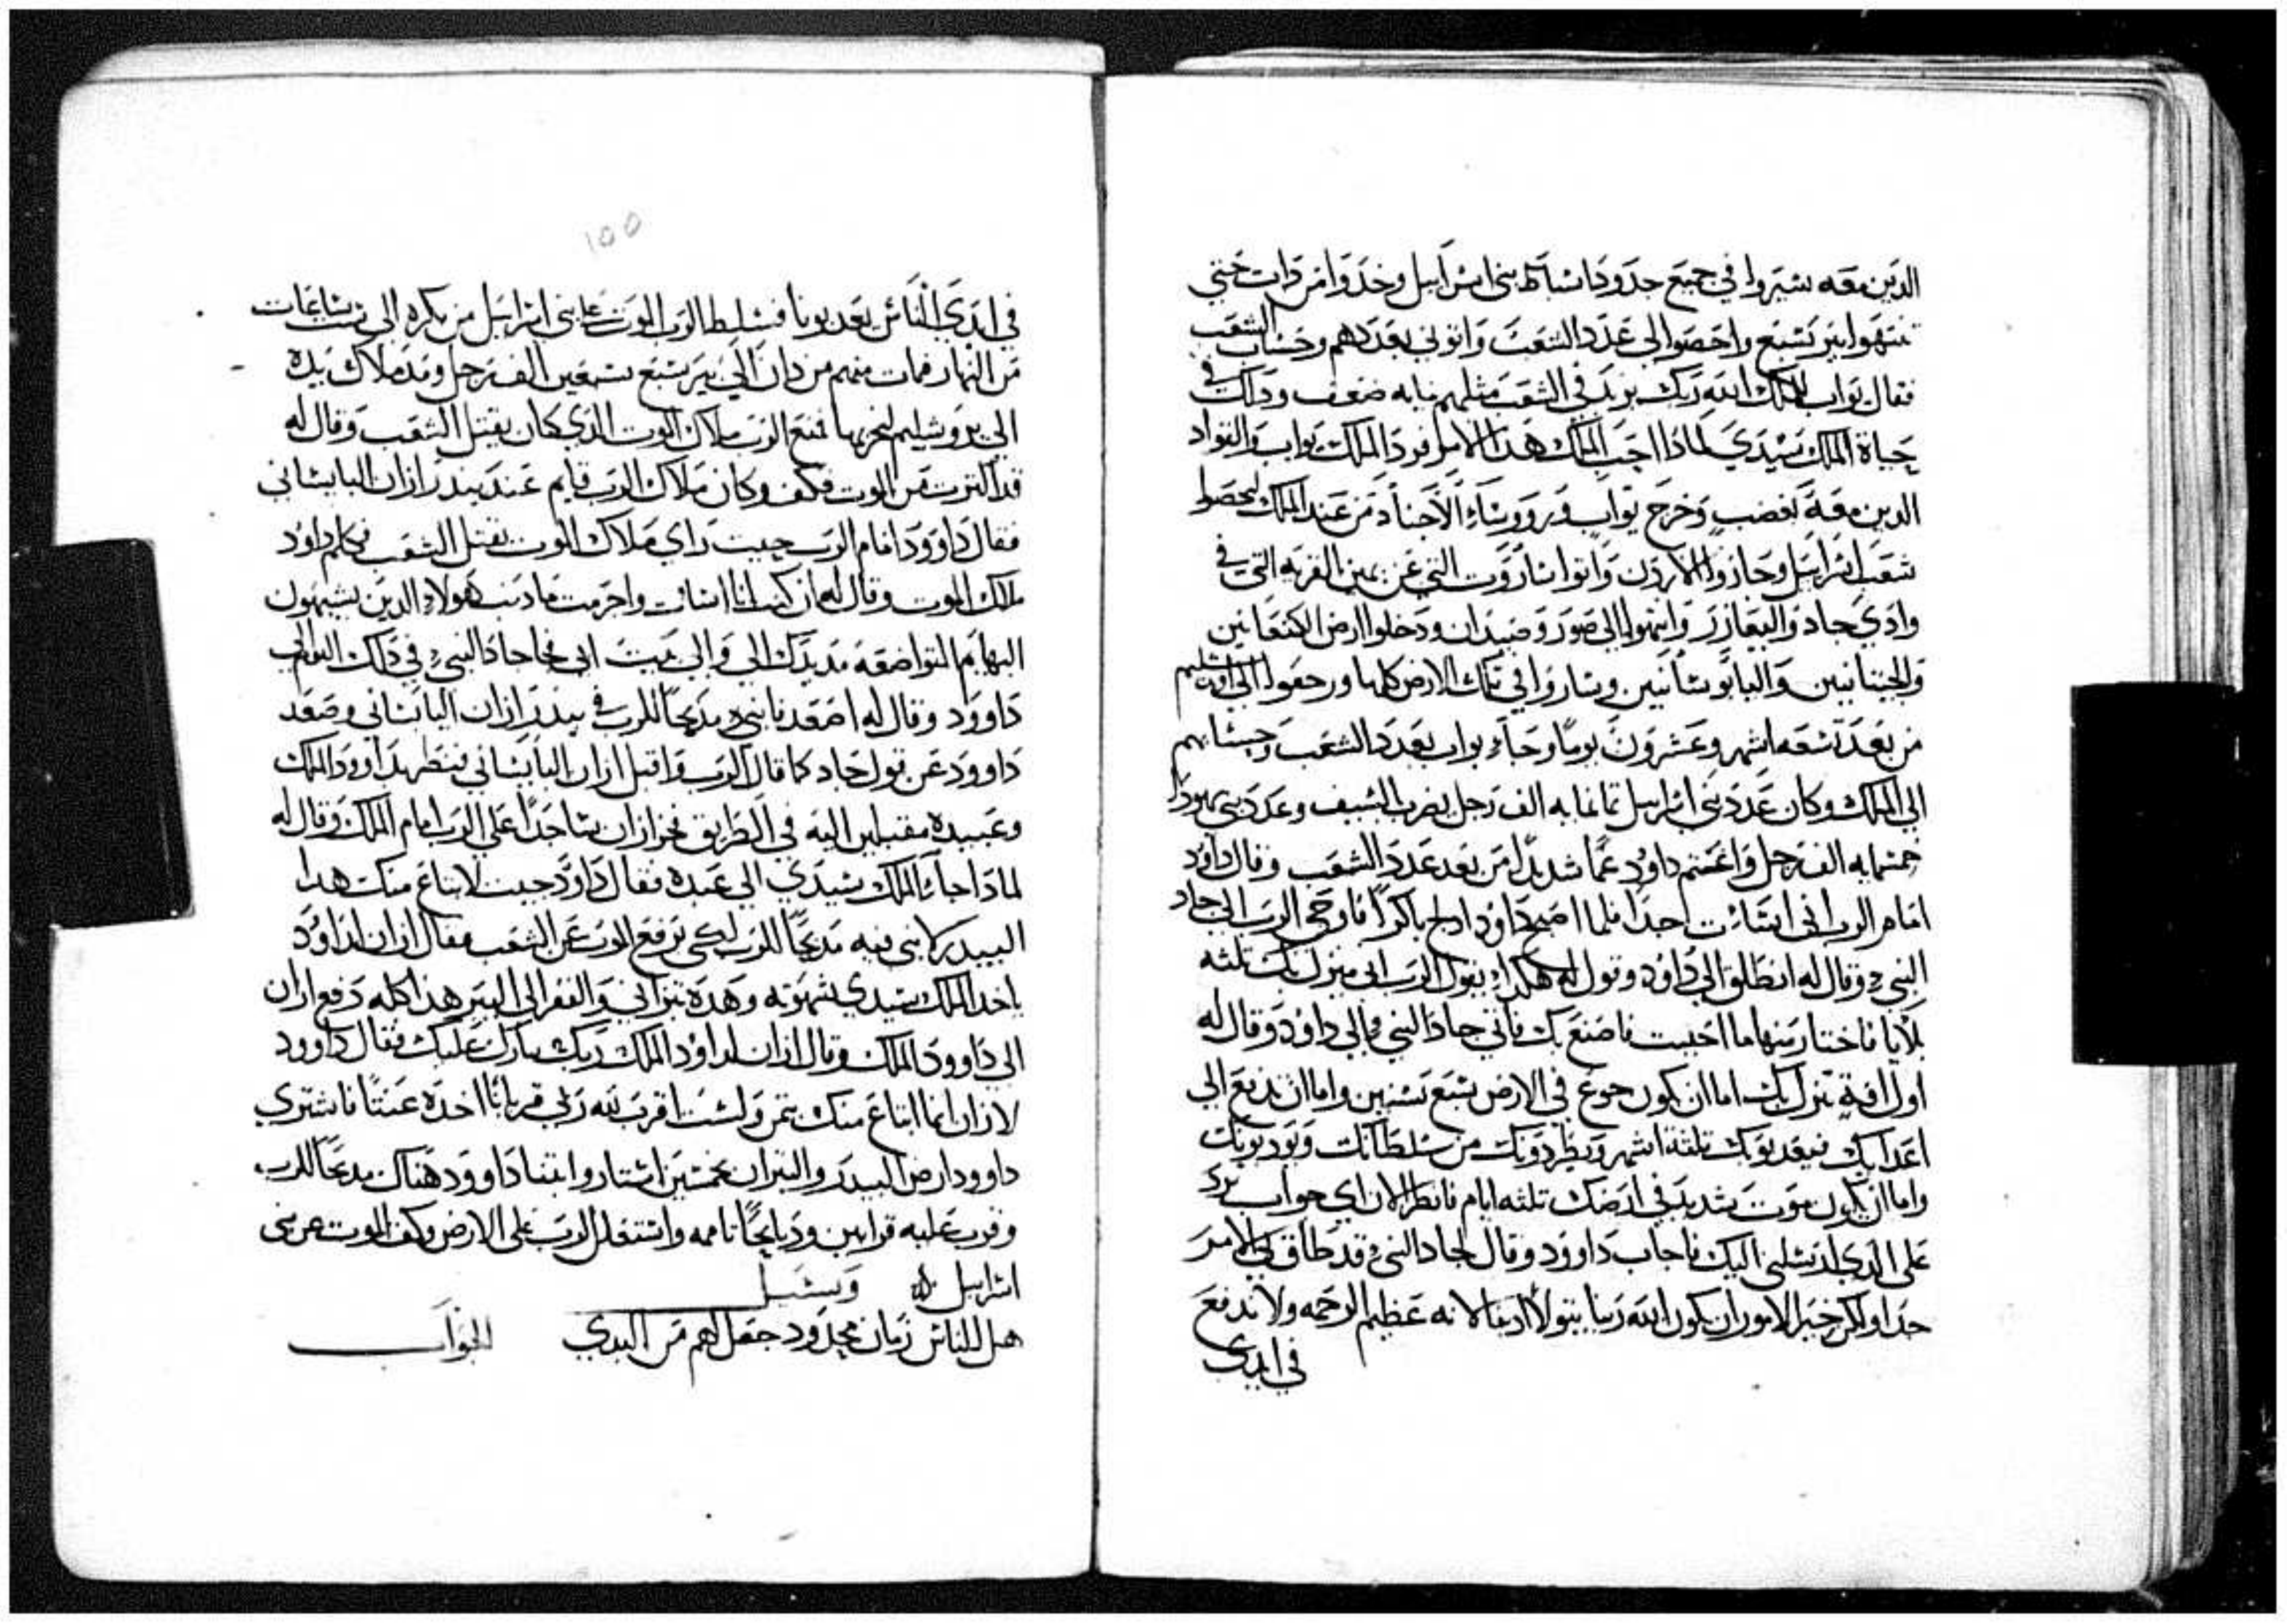 الدين معه سيروا في جميع حدود اسباط بني اسراييل وخدوا من دات حتي
تنتهوا بير تسبع واحصوا لي عدد الشعب واتوني بعددهم وحساب الشعب
فقال يواب للملك الله ربك يزيد في الشعب مثلهم مايه ضعف ودلك في
حياة الملك سيدي لمادا احب الملك هدا الامر فرد الملك يواب والقواد
الدين معه بغضب وخرج يواب وروساء الاجناد من عند الملك ليحصوا
شعب اسراييل وجازوا الاردن واتوا ساروت التي عن يمين القريه التي في
وادي جاد واليعازر وانتهوا الي صور وصيدان ودخلوا ارض الكنعانين
والجيتانيين واليابوسانيين وساروا في تلك الارض كلها ورجعوا الي اورشليم
من بعد تسعه اشهر وعشرون يوما وجاء يواب بعدد الشعب وحسابهم
الي الملك وكان عدد بني اسراييل تمانمايه الف رجل يضرب السيف وعدد بني يهودا
خمسمايه الف رجل واغتم داود غما شديدا من بعد عدد الشعب وقال داود
امام الرب اني اسات جدا فلما اصبح داود ادلج باكرا فاوحي الرب الي جاد
النبي وقال له انطلق الي داود وقول له هكدا يقول الرب اني منزل بك تلته
بلايا فاختار منها ما احببت فاصنع بك فاتي جاد النبي الي داود وقال له
اول افة تنزل بك اما ان يكون جوع في الارض سبع سنين واما ان تدفع الي
اعدايك فيعدبوك تلتة اشهر ويطردونك من سلطانك ويودبونك
واما ان يكون موت شديد في ارضك تلته ايام فانظر الان اي جواب ترد
علي الدي ارسلني اليك فاجاب داوود وقال لجاد النبي قد ضاق بي الامر
جدا ولكن خير الامور ان يكون الله ربنا يتولا ادبنا لانه عظيم الرحمه ولا ندفع
في ايدي
١٥٥
في ايدي الناس يعدبونا فسلط الرب الموت علي بني اسراييل من بكره الي ست ساعات
من النهار فمات منهم من دان الي بير سبع سبعين الف رجل ومد ملاك يده
الي يروشليم ليخربها فمنع الرب ملاك الموت الدي كان يقتل الشعب وقال له
قد اكترت من الموت فكف وكان ملاك الرب قايم عند بيدر ازان اليابساني
فقال داوود امام الرب حيت راي ملاك الموت يقتل الشعب فكلم داود
ملاك الموت وقال له ان كنت انا اسات واجرمت ما دنب هولاء الدين يشبهون
البهايم المتواضعه مد يدك الي والي بيت ابي فجا جاد النبي في دلك اليوم الي
داوود وقال له اصعد فابني مدبحا للرب في بيدر ازان اليابساني وصعد
داوود عن قول جاد كما قال الرب واقبل ازان اليابساني فنظر داوود الملك
وعبيده مقبلين اليه في الطريق فخر ازان ساجدا علي الرب امام الملك وقال له
لمادا جاء الملك سيدي الي عبده فقال داود جيت لابتاع منك هدا
البيدر لابني فيه مدبحا للرب لكي ترفع الموت عن الشعب فقال ازان لداود
ياخد الملك سيدي شهوته وهده تيراني والفقر الي البير هدا كله دفع ازان
الي داوود الملك وقال ازان لداود الملك ربك يبارك عليك فقال داوود
لازان انما ابتاع منك بتمن ولست اقرب لله ربي قربانا اخده عنتا فاشتري
داوود ارض البيدر والتيران بخمسين استار وابتنا داوود هناك مدبحا للرب
وقرب عليه قرابين ودبايحا تامه واشتعل الرب علي الارض وكف الموت عن بني
اسراييل وسيل
هل للناس زمان محدود جعل لهم من البدي الجواب